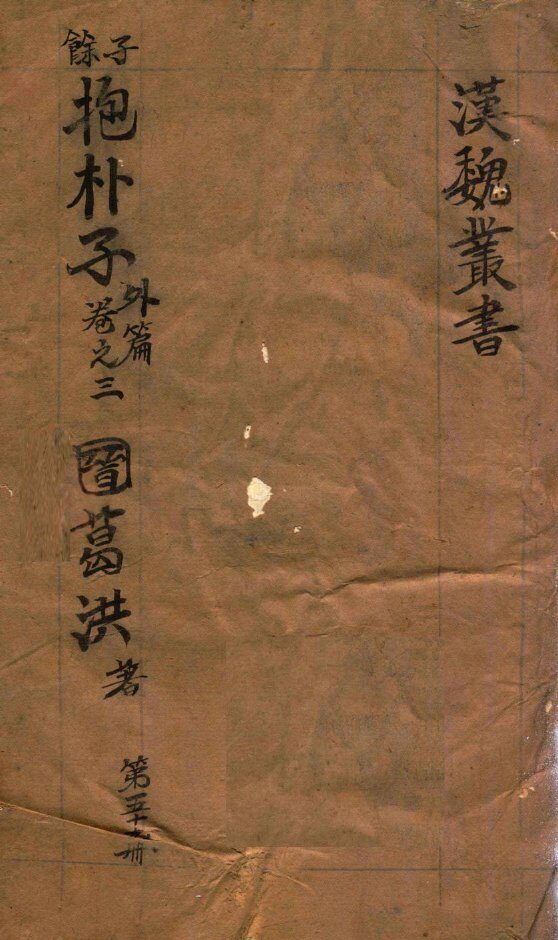 漢魏叢書
子餘
抱朴子
外篇
卷之三
晉
葛洪
著
第五十九冊